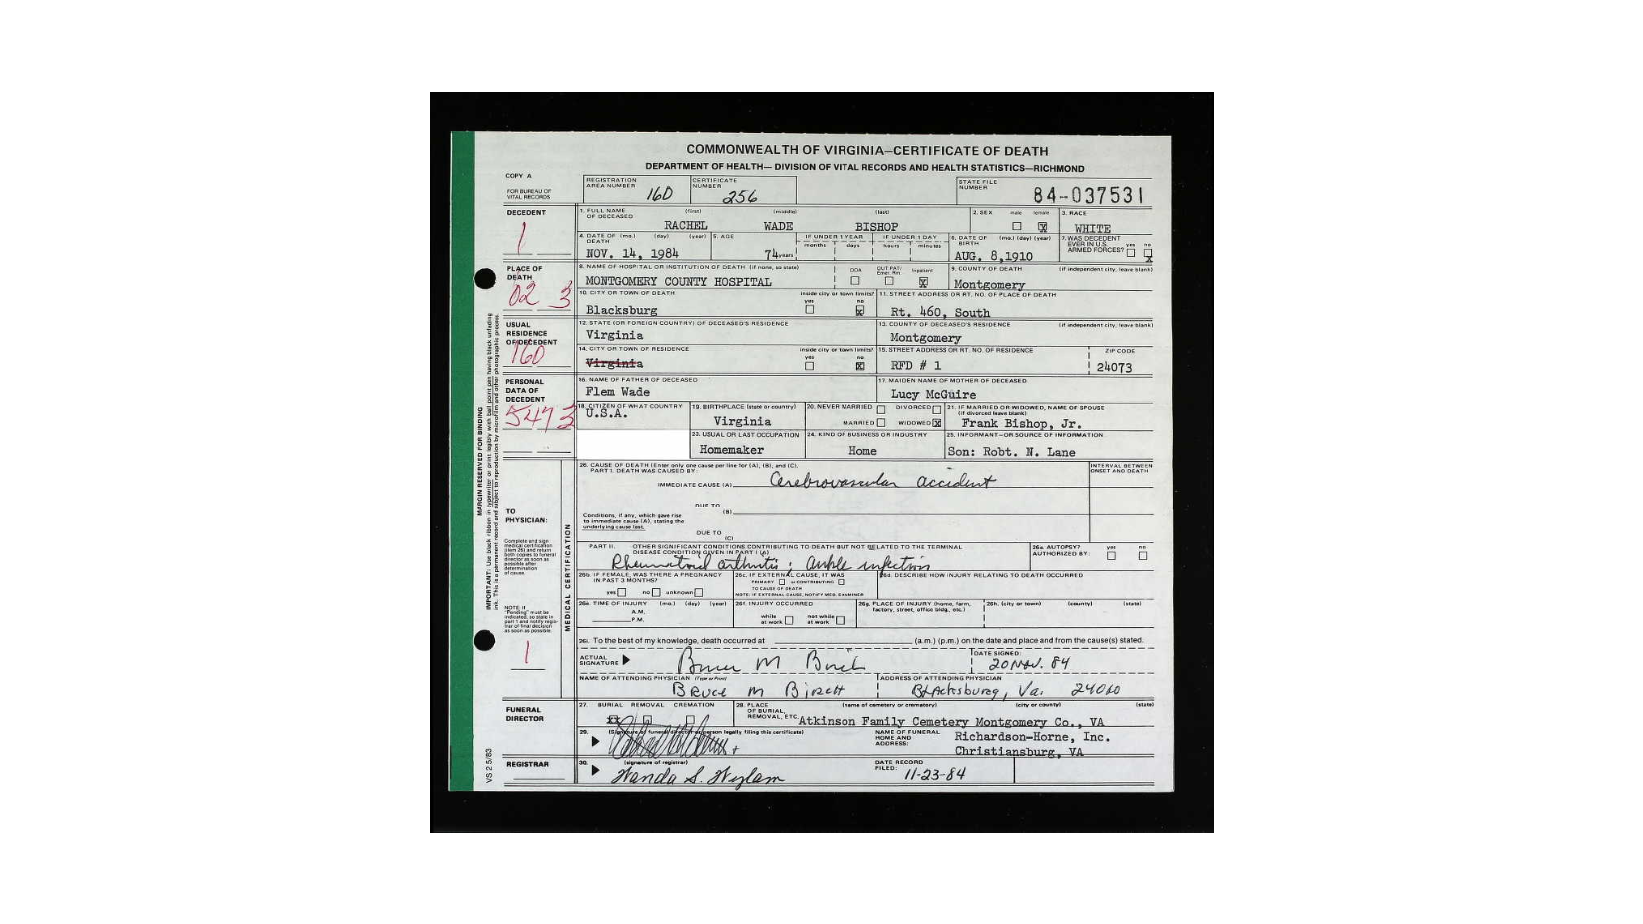 COMMONWEALTH OF VIRGINIA—CERTIFICATE OF DEATH
DEPARTMENT OF HEALTH— DIVISION OF VITAL RECORDS AND HEALTH STATISTICS—RICHMOND
COPY A
FOR BUREAU OF VITAL RECORDS
REGISTRATION AREA NUMBER 160
CERTIFICATE NUMBER 256
STATE FILE NUMBER 84-037531
DECEDENT
1
1. FULL NAME OF DECEASED (first) (middle) (last)
RACHEL WADE BISHOP
2. SEX male female X
3. RACE WHITE
4. DATE OF DEATH (mo.) (day) (year) NOV. 14, 1984
5. AGE 74 years
IF UNDER 1 YEAR months days IF UNDER 1 DAY hours minutes
6. DATE OF BIRTH (mo.) (day) (year) AUG. 8, 1910
7. WAS DECEDENT EVER IN U.S. ARMED FORCES? yes no X
PLACE OF DEATH
02 3
8. NAME OF HOSPITAL OR INSTITUTION OF DEATH (if none, so state)
MONTGOMERY COUNTY HOSPITAL
DOA OUT PAT/ Emer. Rm Inpatient X
9. COUNTY OF DEATH (if independent city, leave blank)
Montgomery
10. CITY OR TOWN OF DEATH inside city or town limits? yes no X
Blacksburg
11. STREET ADDRESS OR RT. NO. OF PLACE OF DEATH
Rt. 460, South
USUAL RESIDENCE OF DECEDENT
160
12. STATE (OR FOREIGN COUNTRY) OF DECEASED'S RESIDENCE
Virginia
13. COUNTY OF DECEASED'S RESIDENCE (if independent city, leave blank)
Montgomery
14. CITY OR TOWN OF RESIDENCE inside city or town limits? yes no X
Virginia
15. STREET ADDRESS OR RT. NO. OF RESIDENCE ZIP CODE
RFD # 1 24073
PERSONAL DATA OF DECEDENT
5473
16. NAME OF FATHER OF DECEASED
Flem Wade
17. MAIDEN NAME OF MOTHER OF DECEASED
Lucy McGuire
18. CITIZEN OF WHAT COUNTRY
U.S.A.
19. BIRTHPLACE (state or country)
Virginia
20. NEVER MARRIED DIVORCED
MARRIED WIDOWED X
21. IF MARRIED OR WIDOWED, NAME OF SPOUSE (if divorced leave blank)
Frank Bishop, Jr.
23. USUAL OR LAST OCCUPATION
Homemaker
24. KIND OF BUSINESS OR INDUSTRY
Home
25. INFORMANT—OR SOURCE OF INFORMATION
Son: Robt. N. Lane
MARGIN RESERVED FOR BINDING
MEDICAL CERTIFICATION
26. CAUSE OF DEATH (Enter only one cause per line for (A), (B), and (C).
PART I. DEATH WAS CAUSED BY:
INTERVAL BETWEEN ONSET AND DEATH
IMMEDIATE CAUSE (A) Cerebrovascular accident
DUE TO (B)
Conditions, if any, which gave rise to immediate cause (A), stating the underlying cause last.
DUE TO (C)
TO PHYSICIAN:
Complete and sign medical certification (item 26) and return both copies to funeral director as soon as possible after determination of cause.
PART II. OTHER SIGNIFICANT CONDITIONS CONTRIBUTING TO DEATH BUT NOT RELATED TO THE TERMINAL DISEASE CONDITION GIVEN IN PART I (A)
Rheumatoid arthritis; ankle infection
26a. AUTOPSY? AUTHORIZED BY: yes no
26b. IF FEMALE, WAS THERE A PREGNANCY IN PAST 3 MONTHS?
yes no unknown
26c. IF EXTERNAL CAUSE, IT WAS
PRIMARY or CONTRIBUTING
TO CAUSE OF DEATH
NOTE: IF EXTERNAL CAUSE, NOTIFY MED. EXAMINER
26d. DESCRIBE HOW INJURY RELATING TO DEATH OCCURRED
NOTE: If "Pending" must be indicated, so state in part 1 and notify registrar of final decision as soon as possible.
26e. TIME OF INJURY (mo.) (day) (year)
A.M.
P.M.
26f. INJURY OCCURRED
while at work not while at work
26g. PLACE OF INJURY (home, farm, factory, street, office bldg., etc.)
26h. (city or town) (county) (state)
1
26i. To the best of my knowledge, death occurred at (a.m.) (p.m.) on the date and place and from the cause(s) stated.
ACTUAL SIGNATURE
DATE SIGNED: 20 Nov. 84
NAME OF ATTENDING PHYSICIAN (Type or Print)
Bruce M
ADDRESS OF ATTENDING PHYSICIAN
Blacksburg, Va. 24060
FUNERAL DIRECTOR
27. BURIAL REMOVAL CREMATION
28. PLACE OF BURIAL, REMOVAL, ETC. (name of cemetery or crematory) (city or county) (state)
Atkinson Family Cemetery Montgomery Co., VA
29. (Signature of funeral director or person legally filing this certificate)
NAME OF FUNERAL HOME AND ADDRESS:
Richardson-Horne, Inc.
Christiansburg, VA
REGISTRAR
30. (signature of registrar)
Wanda S. Wylam
DATE RECORD FILED: 11-23-84
VS 2 5/83